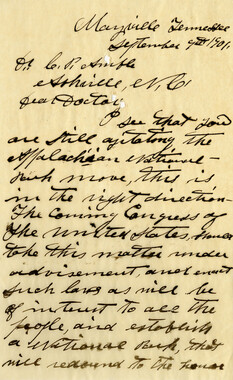 Maryville Tennessee
September 9th 1901.
Dr C. P. Ambler
Asheville, N. C.
Dear Doctor,
I see that you
are still agitating the
Appalachian National
Park move, this is
in the right direction
The Coming Congress of
the United States, should
take this matter under
advisement and enact
such laws as will be
of interest to all the
people, and establish
a National Park, that
will redound to the honor